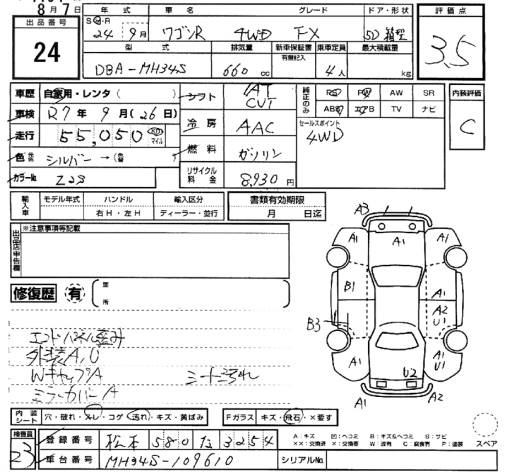 8月7日
出品番号
24
年式 車名 グレード ドア・形状
S・H・R
24年9月 ワゴンR 4WD FX 5D 箱型
型式 排気量 新車保証書 乗車定員 最大積載量
有無記入
DBA-MH34S 660cc 4人 kg
評価点
3.5
車歴 自家用・レンタ( )
車検 R7年9月(26日)
走行 55,050 km マイル
色 シルバー→(色替 )
カラーNo. Z2S
シフト AT CVT
冷房 AAC
燃料 ガソリン
リサイクル料金 8,930円
純正のみ
RS PW AW SR
ABS エアB TV ナビ
セールスポイント
4WD
内装評価
C
輸入車
モデル年式 ハンドル 輸入区分
右H・左H ディーラー・並行
書類有効期限
月 日迄
出品店申告欄
※注意事項等記載
修復歴 有
箇所
エンドパネル歪み
外装A,U
WキャップA シート汚れ
ミラーカバーA
A3
A1 A1 A1
B1 A1
A2
U1
B3
A1
U1
U2
A1 A1
内装シート 穴・破れ・スレ・コゲ・汚れ・キズ・黄ばみ
Fガラス キズ・飛石・×要す
検査員
23
登録番号 松本 580 1ュ 3254
車台番号 MH34S-109610
シリアルNo.
A:キズ U:ヘコミ B:キズ&ヘコミ S:サビ
××:交換済 X:交換 W:波有 C:腐食有 P:塗装
スペア